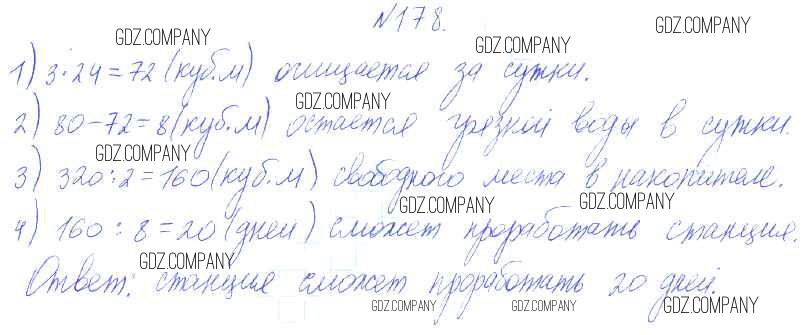 №178.
GDZ.COMPANY GDZ.COMPANY
1) 3·24=72 (куб.м) очищается за сутки.
GDZ.COMPANY
2) 80-72=8 (куб.м) остается грязной воды в сутки.
GDZ.COMPANY
3) 320:2=160 (куб.м) свободного места в накопителе.
GDZ.COMPANY GDZ.COMPANY
4) 160:8=20 (дней) сможет проработать станция.
GDZ.COMPANY
Ответ: станция сможет проработать 20 дней.
GDZ.COMPANY GDZ.COMPANY GDZ.COMPANY